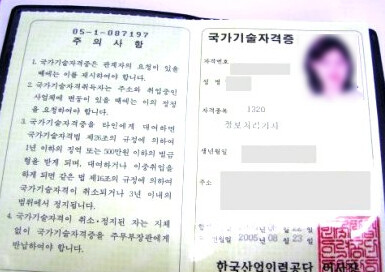 05-1-087197
주 의 사 항
1. 국가기술자격증은 관계자의 요청이 있을
때에는 이를 제시하여야 합니다.
2. 국가기술자격취득자는 주소와 취업중인
사업체에 변동이 있을 때에는 이의 정정
을 요청하여야 합니다.
3. 국가기술자격증을 타인에게 대여하면
국가기술자격법 제26조의 규정에 의하여
1년 이하의 징역 또는 500만원 이하의 벌금
형을 받게 되며, 대여하거나 이중취업을
하게 되면 같은 법 제16조의 규정에 의하여
국가기술자격이 취소되거나 3년 이내의
범위에서 정지됩니다.
4. 국가기술자격이 취소·정지된 자는 지체
없이 국가기술자격증을 주무부장관에게
반납하여야 합니다.
국가기술자격증
자격번호
성 명
자격종목 1320
정보처리기사
생년월일
주소
2005 08 23
한국산업인력공단 이사장